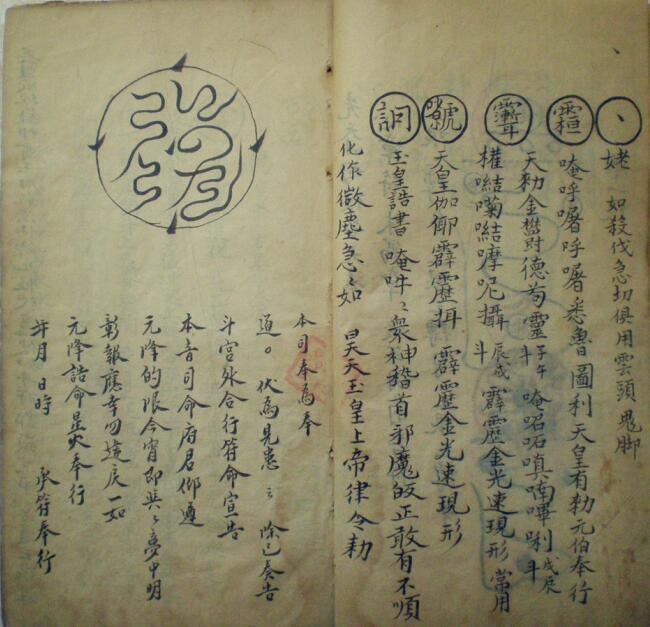 如殺伐急切俱用雲頭鬼脚
丶姥
唵呼嚧呼嚧悉魯圖利天皇有勑元伯奉行
天勑金 對德荀靈子午斗唵 嗔喃嗶唎斗戊辰
權 呢攝斗辰戌霹靂金光速現形常用
天皇伽 霹靂揖霹靂金光速現形
玉皇誥書唵吽〻衆神稽首邪魔皈正敢有不順
化作微塵急〻如昊天玉皇上帝律令勑
本司奉為奉
道〇伏為見患〻除已奏告
斗宮外合行符命宣告
本音司命府君仰遵
元降的限今宵即與〻夢中明
彰報應幸勿違戾一如
元降誥命星火奉行
年月日時承符奉行